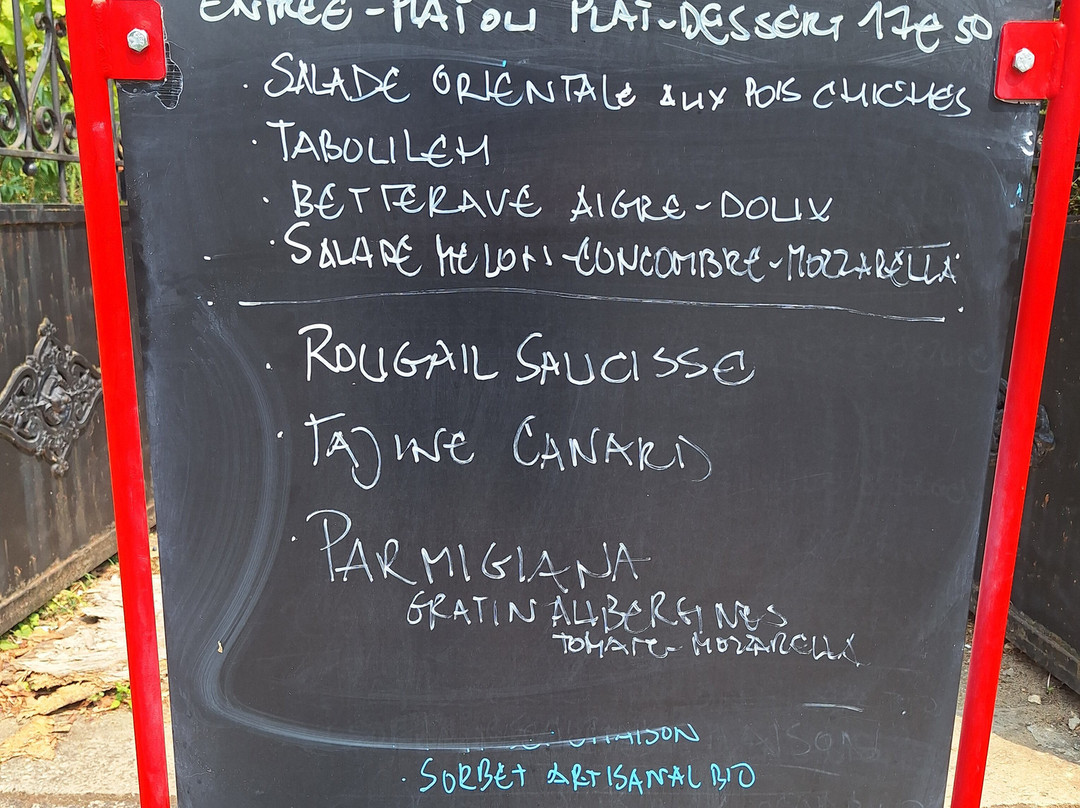 ENTRÉE-PLAT OU PLAT-DESSERT 17€50
· SALADE ORIENTALE AUX POIS CHICHES
· TABOULEH
· BETTERAVE AIGRE-DOUX
· SALADE MELON-CONCOMBRE-MOZZARELLA
· ROUGAIL SAUCISSE
· TAJINE CANARD
· PARMIGIANA
GRATIN AUBERGINES
TOMATE-MOZZARELLA
MAISON
· SORBET ARTISANAL BIO